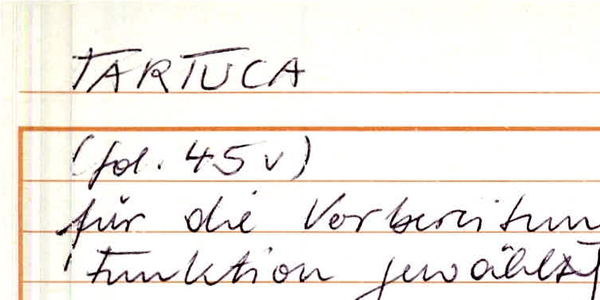 TARTUCA
(fol. 45v)
für die Vorbereitun
Funktion gewählt